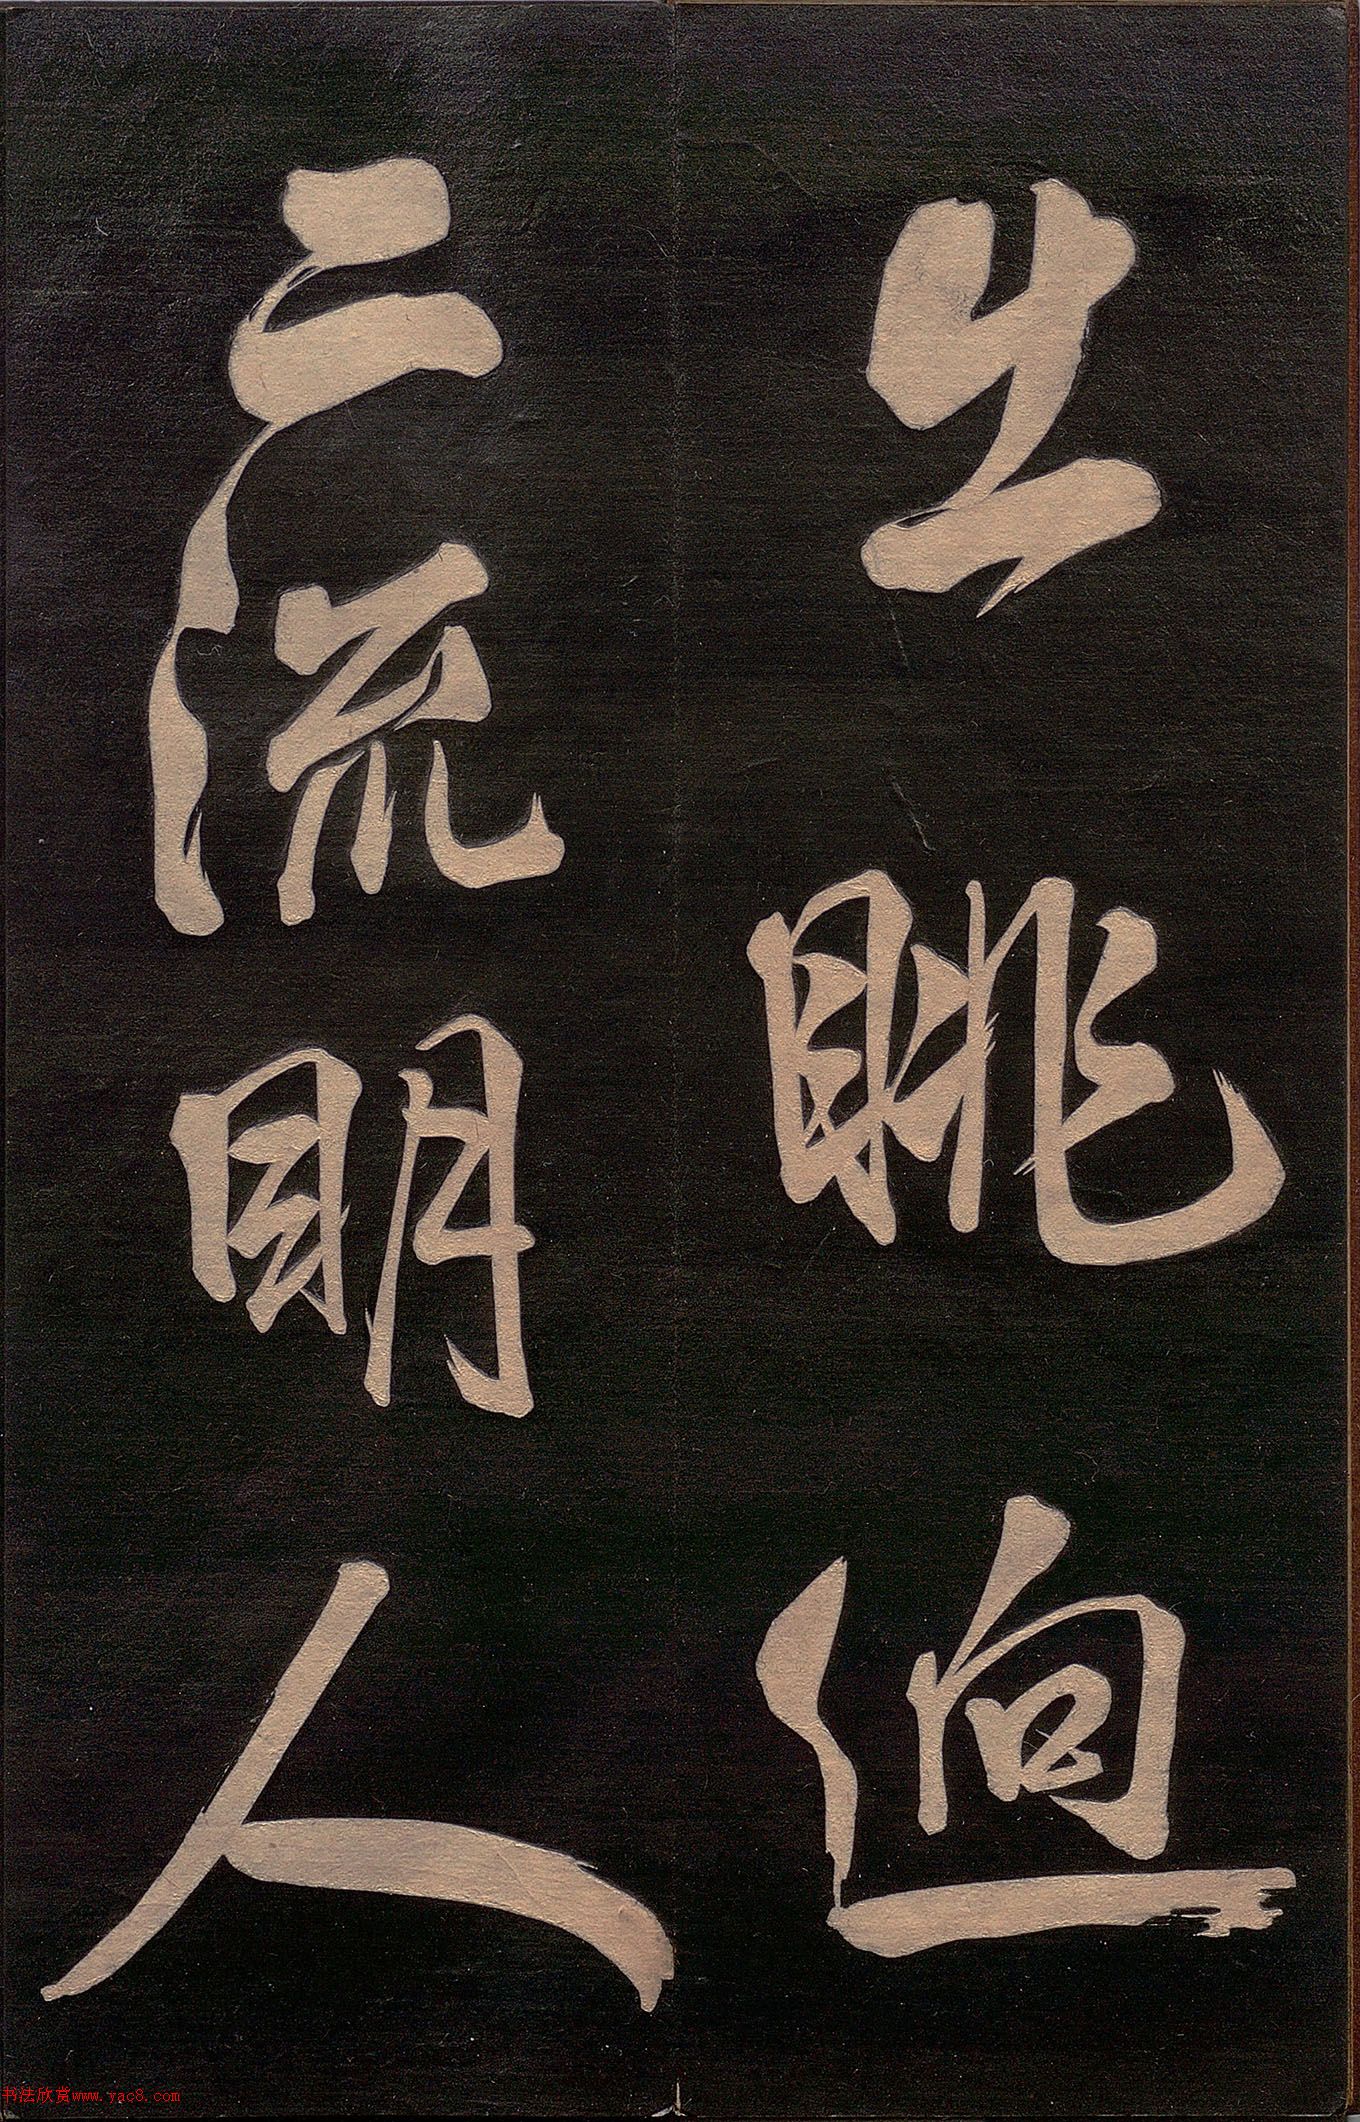 生眺迥
二流明人
书法欣赏www.yac8.com